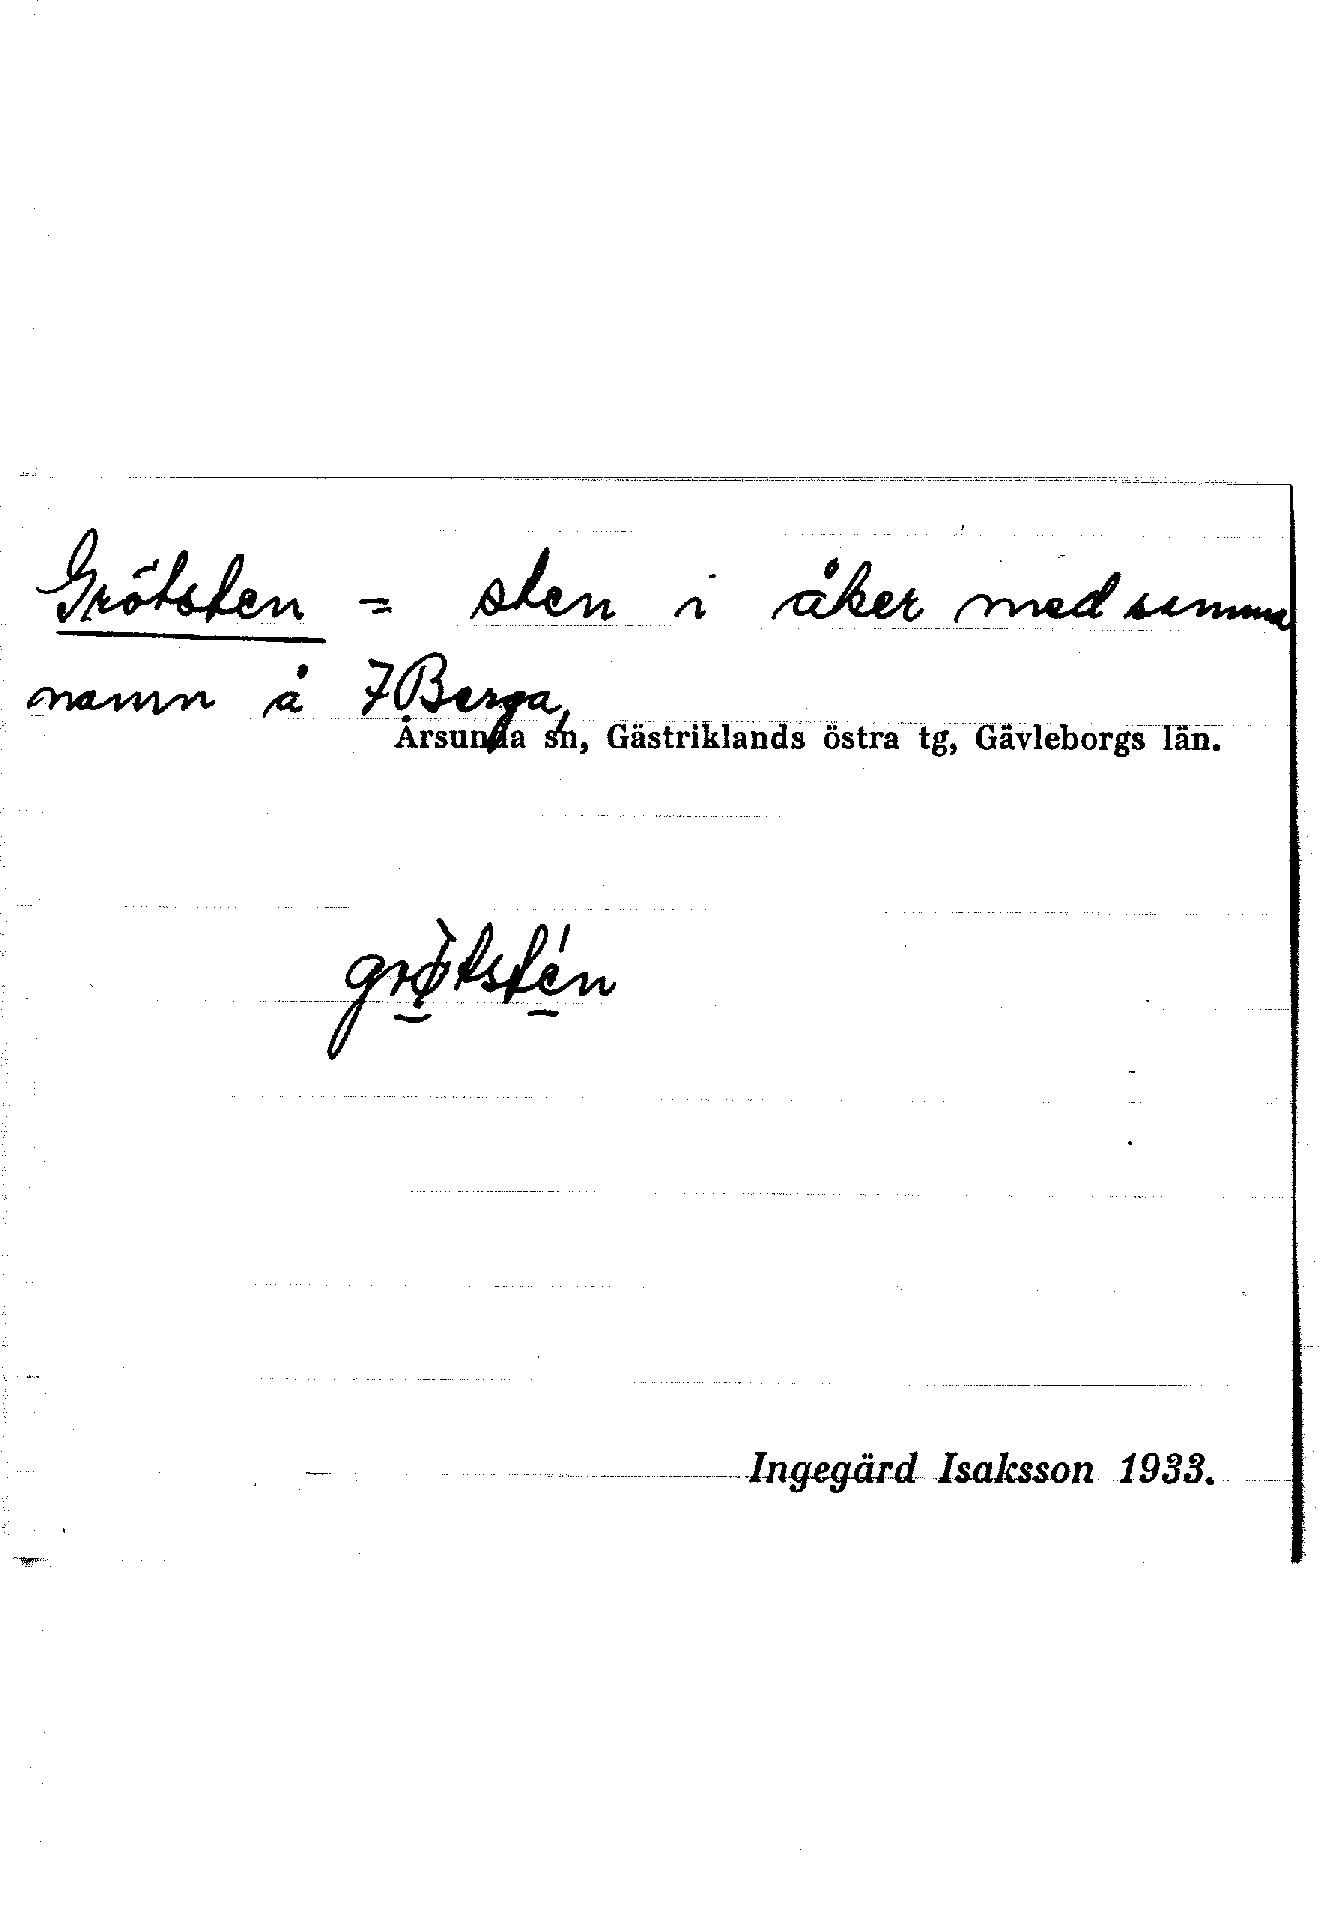 Grötsten = sten i åker med samma
namn å 7 Berga,
Årsunda sn, Gästriklands östra tg, Gävleborgs län.
grø̀tstén
Ingegärd Isaksson 1933.